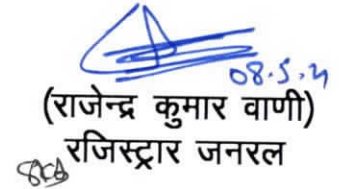 08.5.21
(राजेन्द्र कुमार वाणी)
रजिस्ट्रार जनरल